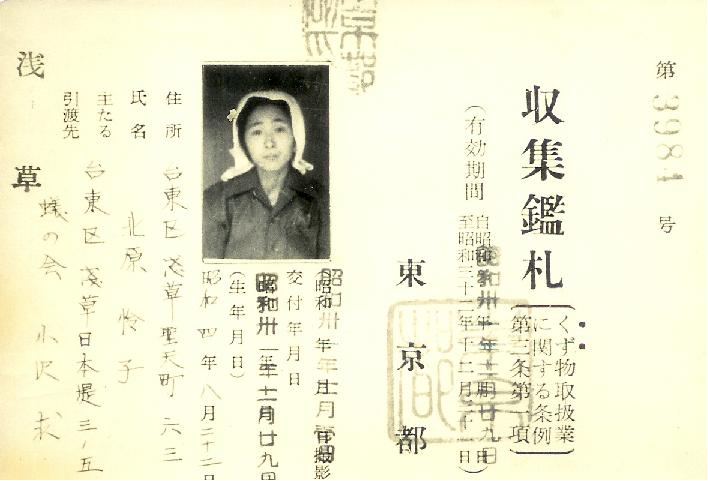 第3984号
収集鑑札
くず物取扱業
に関する条例
第三条第一項
(有効期間
至昭和三十二年十二月三十一日)
東京都
交付年月日
昭和卅一年十一月廿九日
(生年月日)
昭和四年八月二十二日
住所 台東区浅草聖天町六三
氏名 北原怜子
主たる
引渡先
台東区浅草日本堤三ノ五
蟻の会 小沢求
浅草